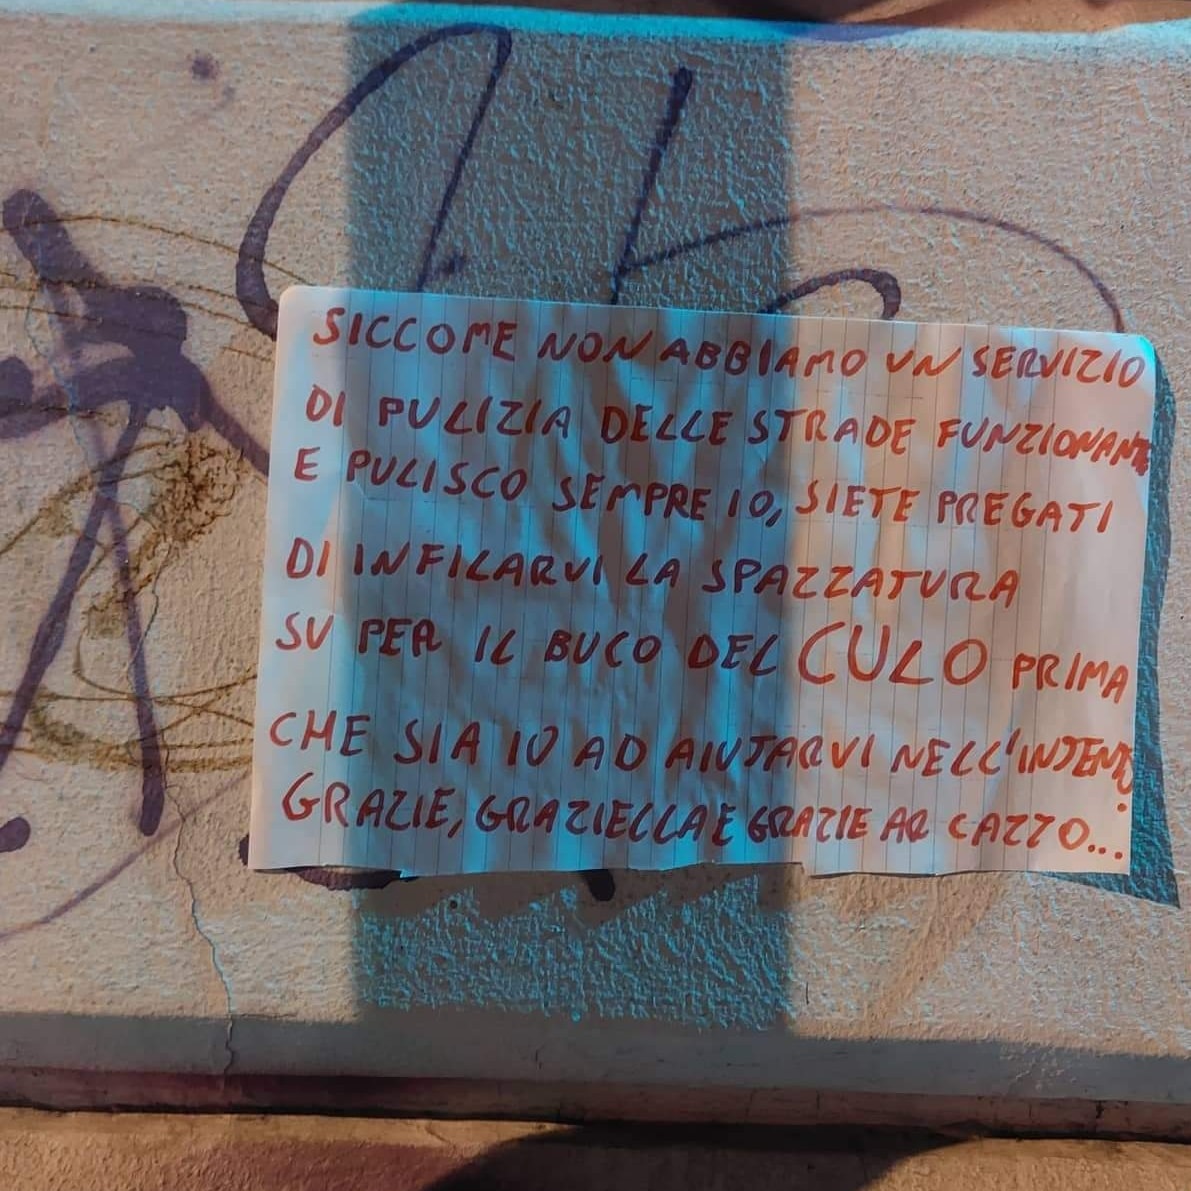 SICCOME NON ABBIAMO UN SERVIZIO
DI PULIZIA DELLE STRADE FUNZIONANTE
E PULISCO SEMPRE IO, SIETE PREGATI
DI INFILARVI LA SPAZZATURA
SU PER IL BUCO DEL CULO PRIMA
CHE SIA IO AD AIUTARVI NELL'INTENTO.
GRAZIE, GRAZIELLA E GRAZIE AR CAZZO...